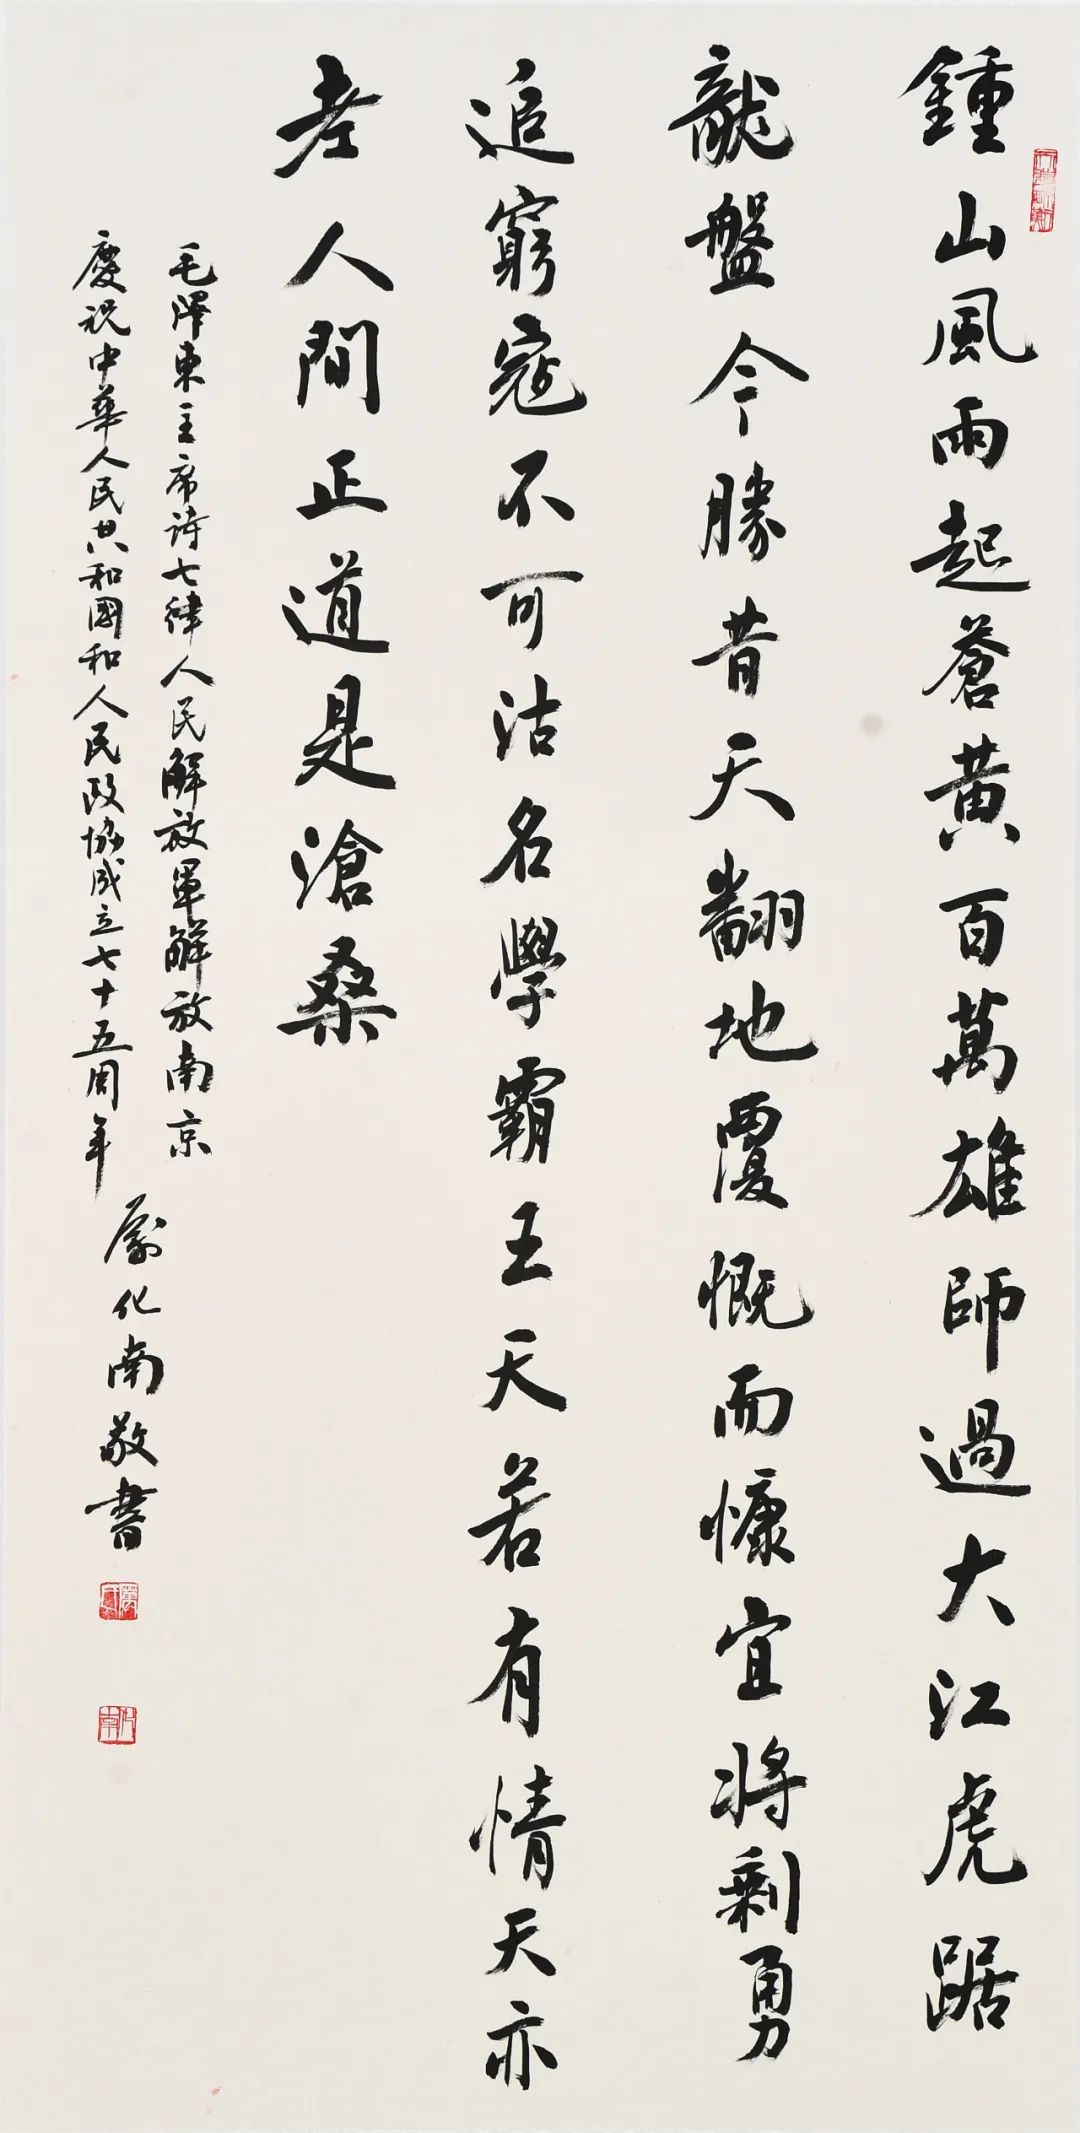 鍾山風雨起蒼黃百萬雄師過大江虎踞
龍盤今勝昔天翻地覆慨而慷宜將剩勇
追窮寇不可沽名學霸王天若有情天亦
老人間正道是滄桑
毛澤東主席詩七律人民解放軍解放南京
慶祝中華人民共和國和人民政協成立七十五周年
化南敬書